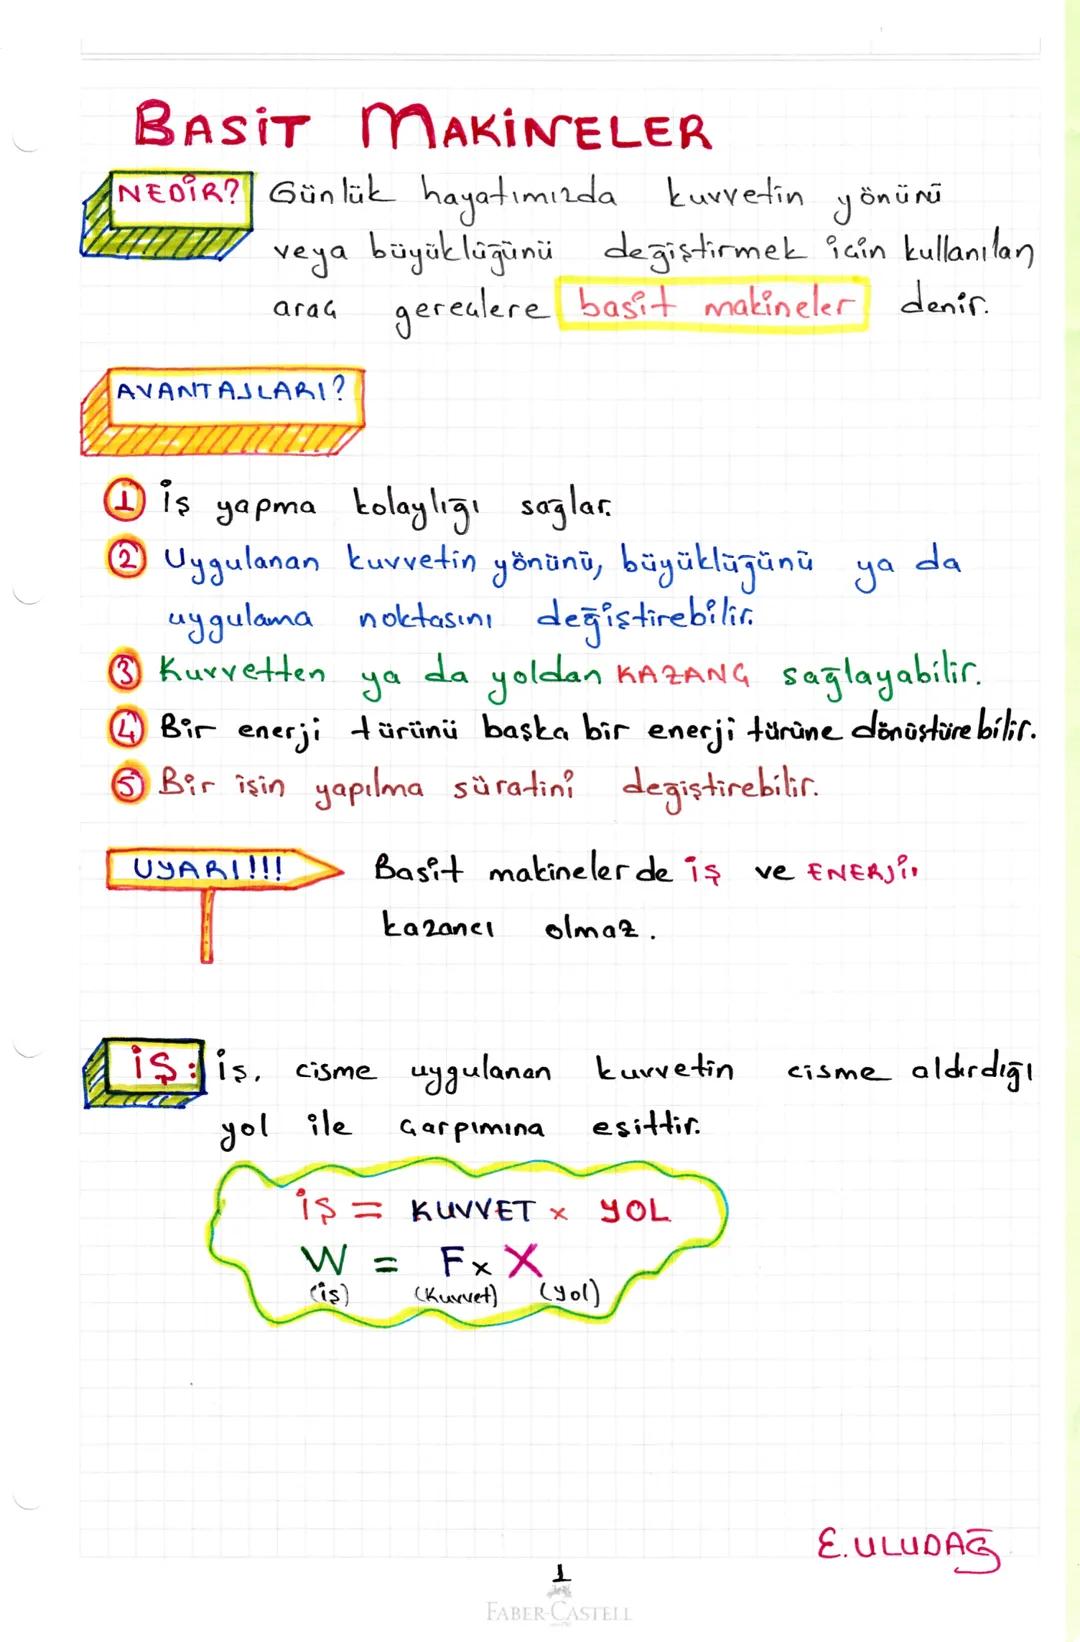 BASİT MAKİNELER
NEDİR? Günlük hayatımızda kuvvetin yönünü
veya büyüklüğünü değiştirmek için kullanılan
araç gereçlere basit makineler denir.
AVANTAJLARI?
1 iş yapma kolaylığı sağlar.
2 Uygulanan kuvvetin yönünü, büyüklüğünü ya da
uygulama noktasını değiştirebilir.
3 Kuvvetten ya da yoldan KAZANÇ sağlayabilir.
4 Bir enerji türünü başka bir enerji türüne dönüştürebilir.
5 Bir işin yapılma süratini değiştirebilir.
UYARI!!! Basit makinelerde iş ve ENERJİ
kazancı olmaz.
İŞ: iş, cisme uygulanan kuvvetin cisme aldırdığı
yol ile çarpımına eşittir.
İŞ = KUVVET x YOL
W = F x X
(iş) (Kuvvet) (yol)
E.ULUDAĞ
1
FABER-CASTELL